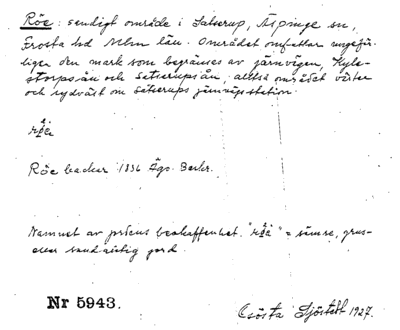 Röe: sandigt område i Satserup, Äspinge sn,
Frosta hd Mlm län. Området omfattar ungefär-
ligen den mark som begränsas av järnvägen, Kyle-
storpsån och Satserupsån, alltså området väster
och sydväst om Satserups järnvägsstation.
Röe backar 1836 Ägo. Beskr.
Namnet av jordens beskaffenhet. " " = sämre, grus-
eller sandaktig jord.
Nr 5943.
Gösta Sjöstedt 1927.